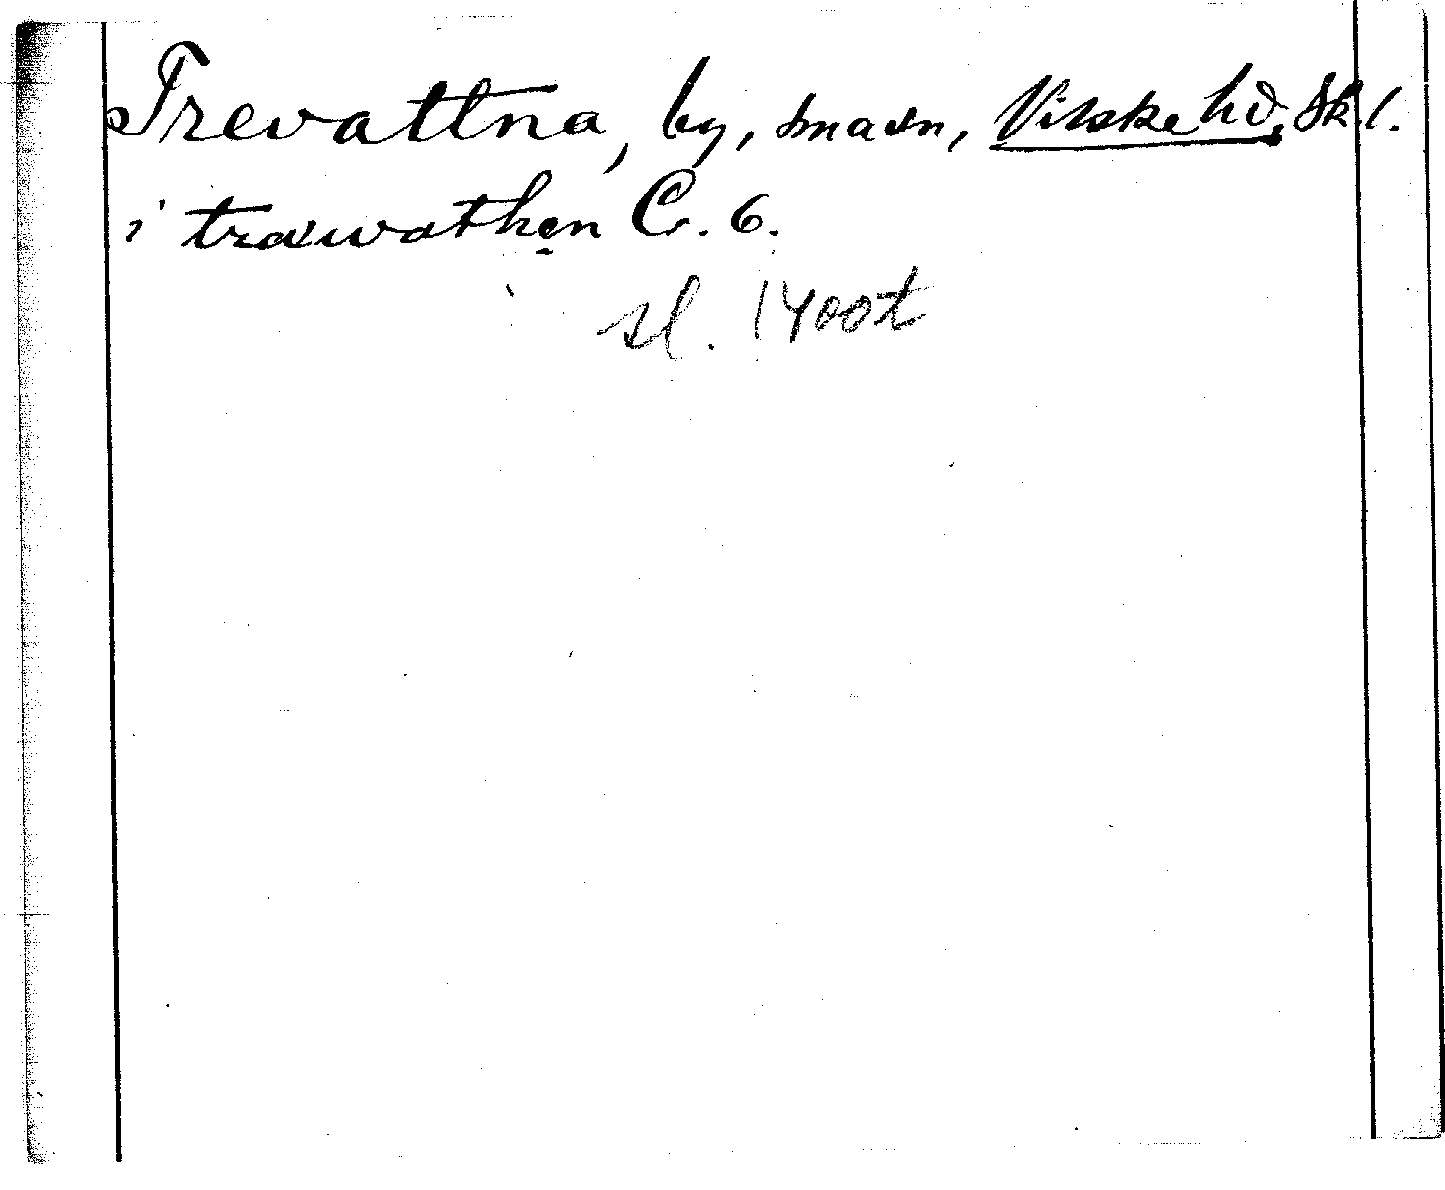 Trevattna, by, smasn, Vilske hd, Sk. l.
i træwathen C. 6.
sl. 1400t